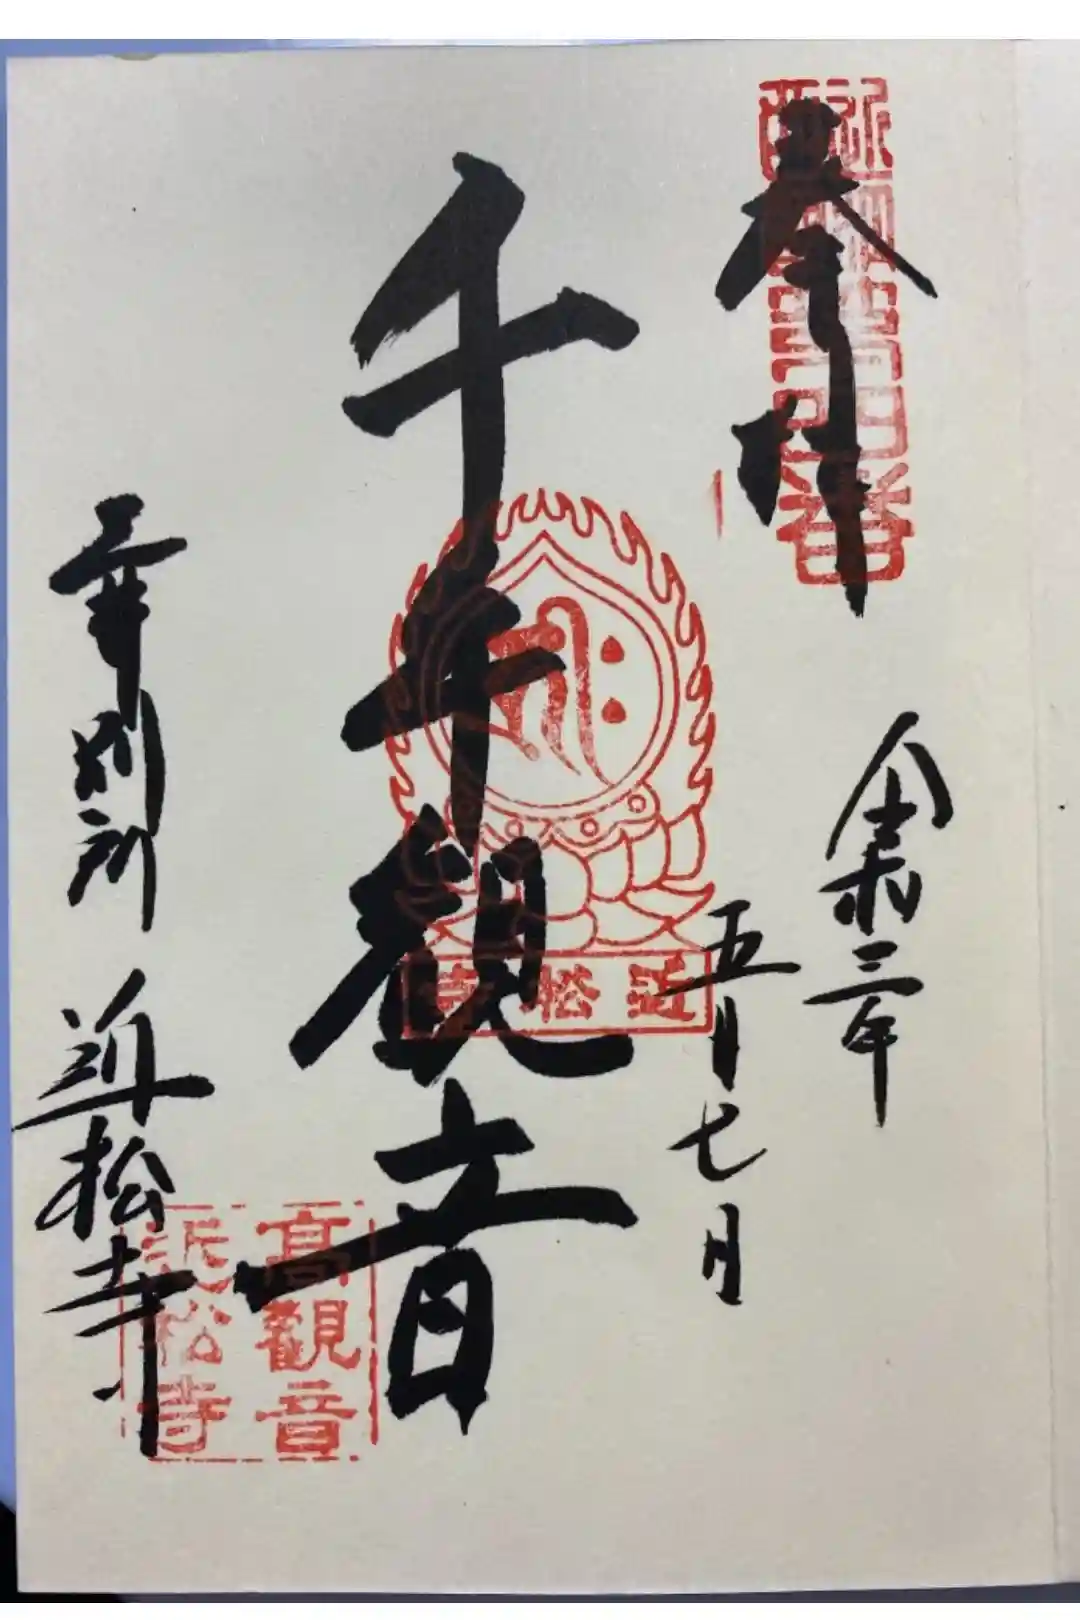 奉拝
令和三年
五月七日
千手觀音
近松寺
三井別所 近松寺
高觀音
近松寺